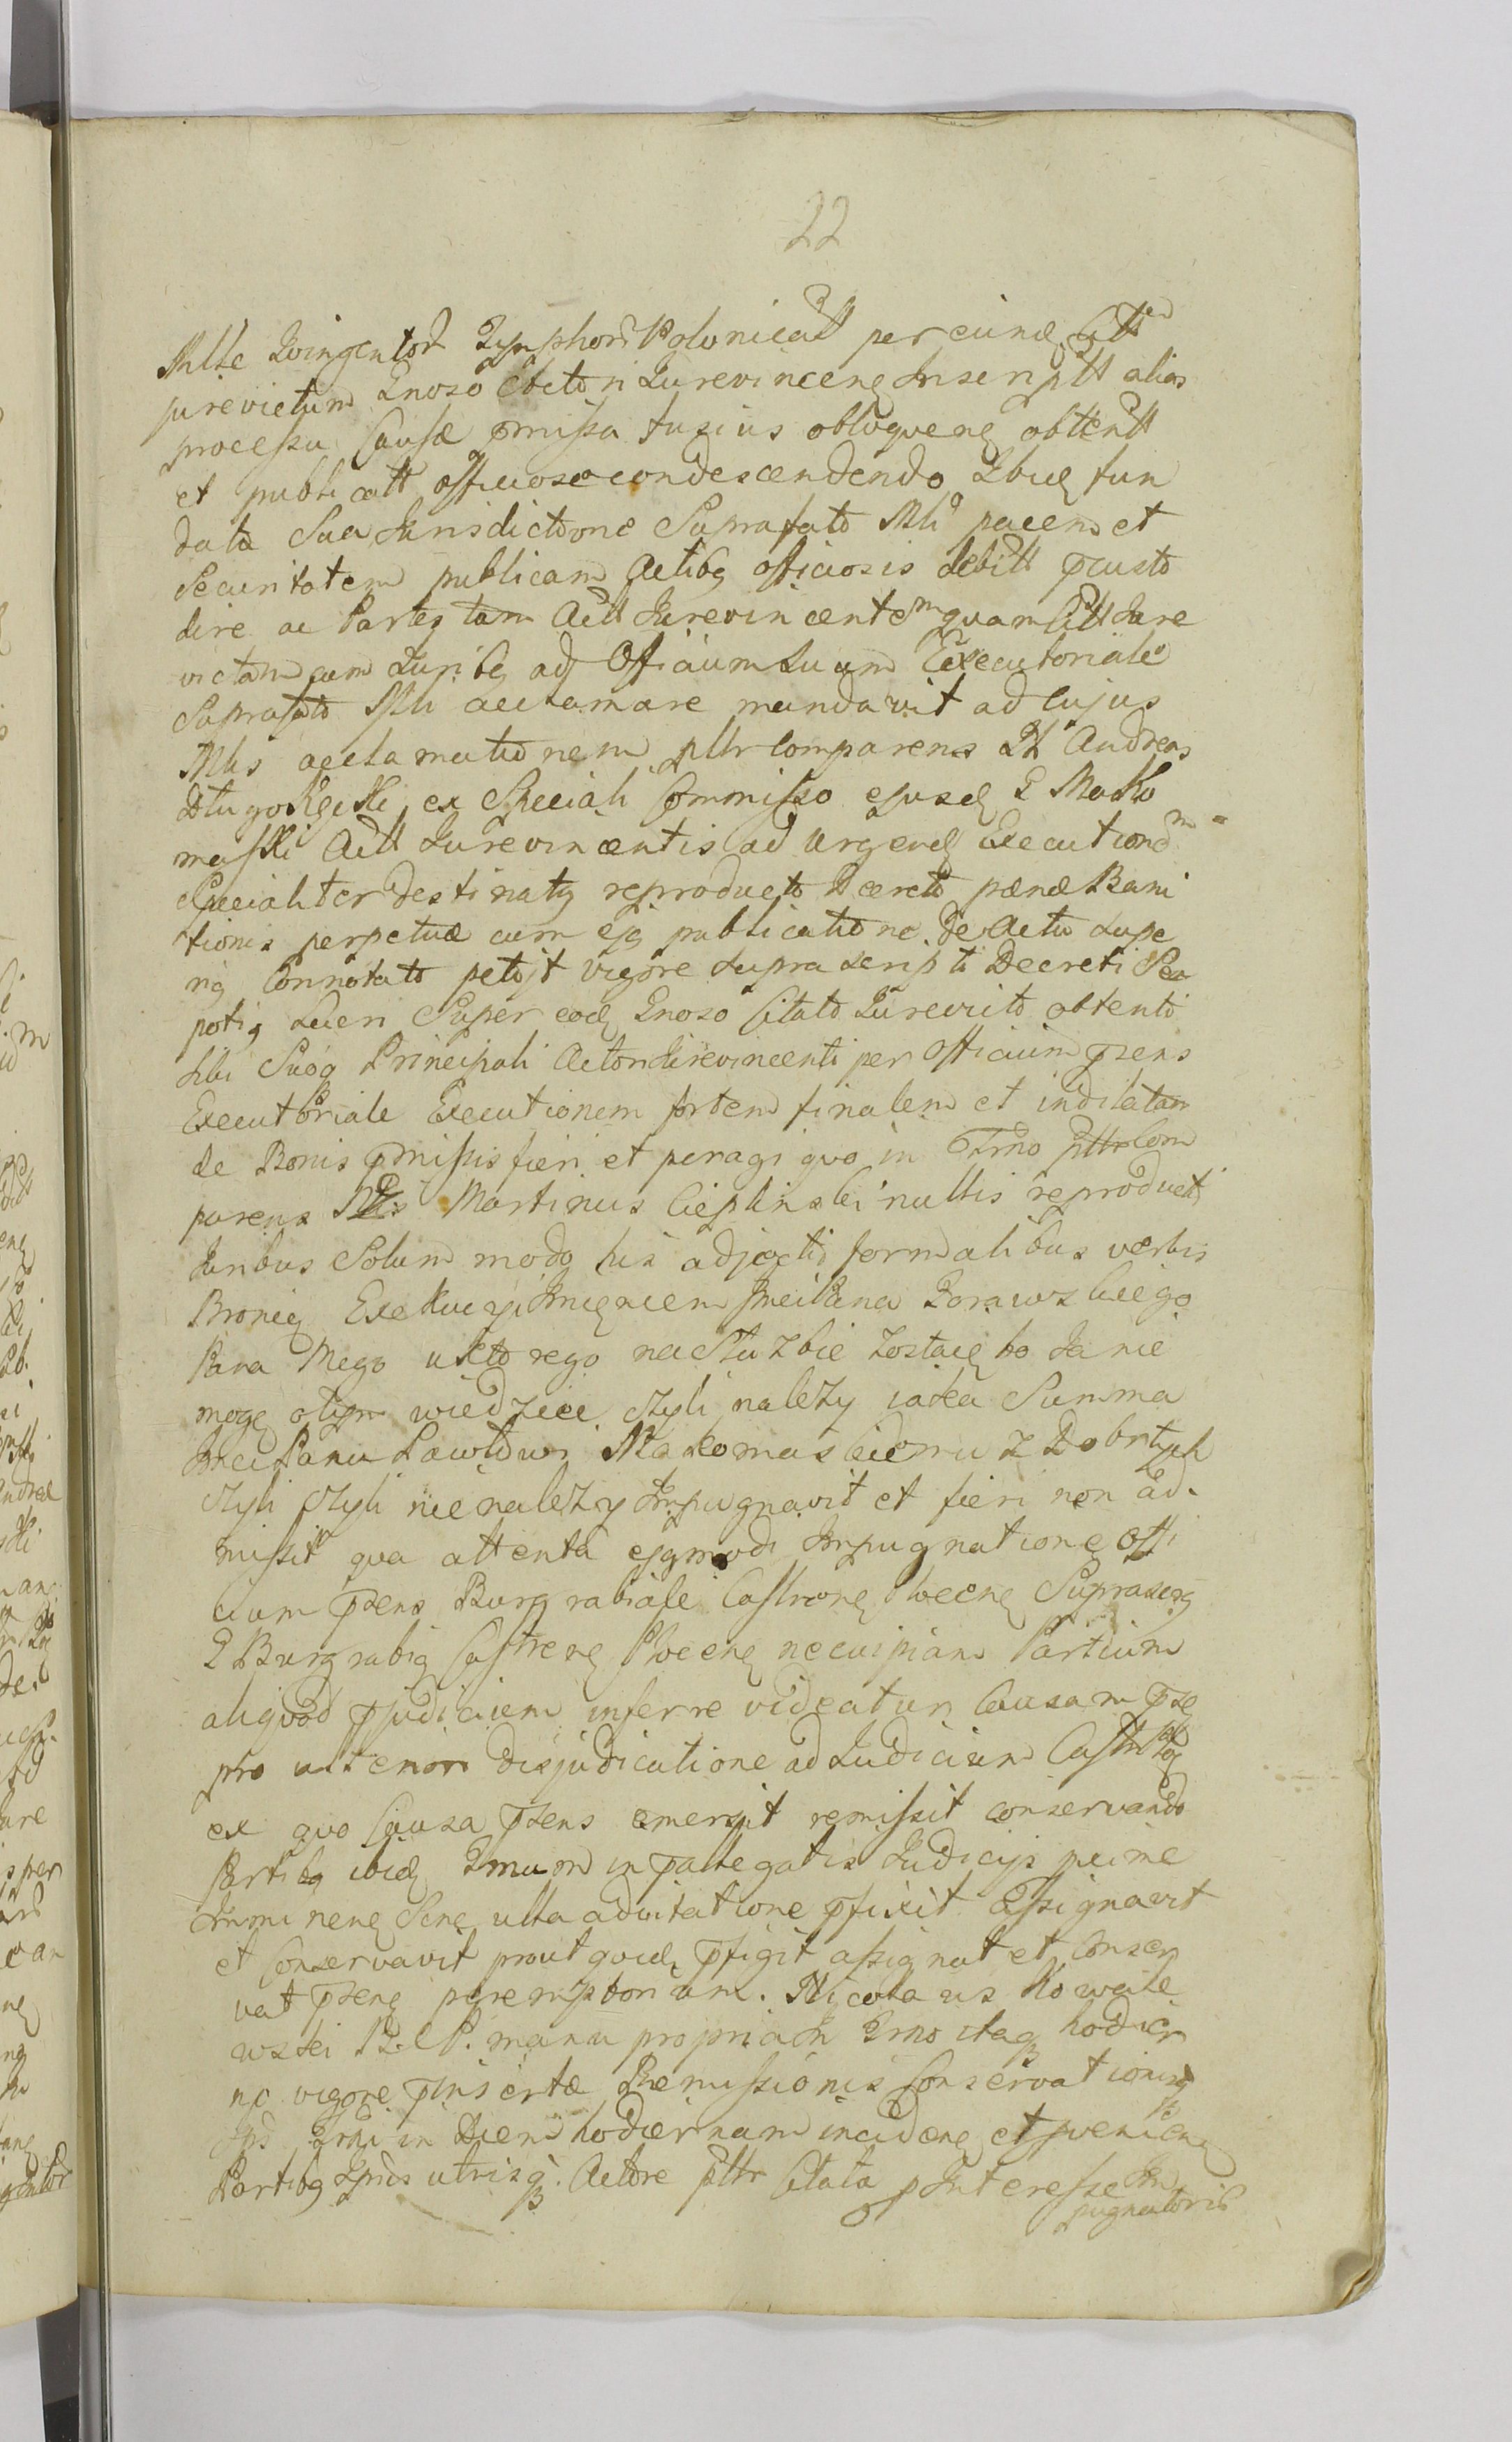 22
Mille Quingentor Tynphor Polonicall per eund Citt
jurevictum Gnoso Actori Jurevinceng Inscriptt alias
processu Causæ omissa fusius obloqueng obttentt
et publicatt officiose condescendendo Ibid fun
data Sua Jurisdictione Suprafato Mli pacem et
Securitatem publicam Actibg officiosis debitt pcusto
dire ac Partes tam Actt Jurevincentem quam Citt Jure
victam cum Juribg ad Officium Suum Executoriale
Suprafato Mli acclamare mandavit ad cujus
Mlis acclamationem pttr Comparens Andreas
Dlugoleçki ex Speciali Commisso ejusd G Mako
maski Actt Jurevincentis ad Urgend Executionem
Specialiter destinatg reproducto Decreto pænæ Bani
tionis perpetuæ cum ejg publicatione de Actu Supe
rig Connotato petijt vigore Suprascripti Decreti Se
potig Lucri Super eod Gnoso Citato Jurevicto obtenti
Sibi Suog Principali Actori Jurevincenti per Officium psens
Executoriale Executionem fortem finalem et indilatam
de Bonis pmissis fieri et peragi quo in Trno pttr Com
parens Martinus Cieplinski nullis reproduct
Juribus Solum modo his adjectis formalibus verbis
Bronię Exekucyi Imięniem Jmci Pana Zorawskiego
Pana Mego u ktorego na Słuzbie zostaię bo Ja nie
mogę otym wiedziec czyli nalezy iaka Summa
Jmci Panu Pawłowi Makomaskiemu z Dobr tych
czyli czyli nienalezy Impugnavit et fieri non ad-
missit qua attenta ejgmodi Impugnatione Offi
cium psens Burgrabiale Castrense Plocene Suprascrg
G Burgrabig Castreng Ploceng ne cuipiam Partium
aliquod pjudicium inferre videatur Causam pse
pro ulteriori disjudicatione ad Judicium Castr
ex quo Causa psens emersit remissit conservando
Partibg ibid Trnum in pallegatis Judicijs
Immineng Sine ulla adcitatione pfixit Assignavit
et Conservavit prout quid pfigit assignat et Conser
vat pseng peremptorium. Nicolaus Kowale
wski B. C. P. manu propria In Trno itaq hodier
no vigore pinsertæ Remissionis Conservationisq
Trni in Diem hodiernam incideng et pvenieng
Partibg Ipsis utrisq. Actore pttr Citata p Interesse Im
pugnatoris